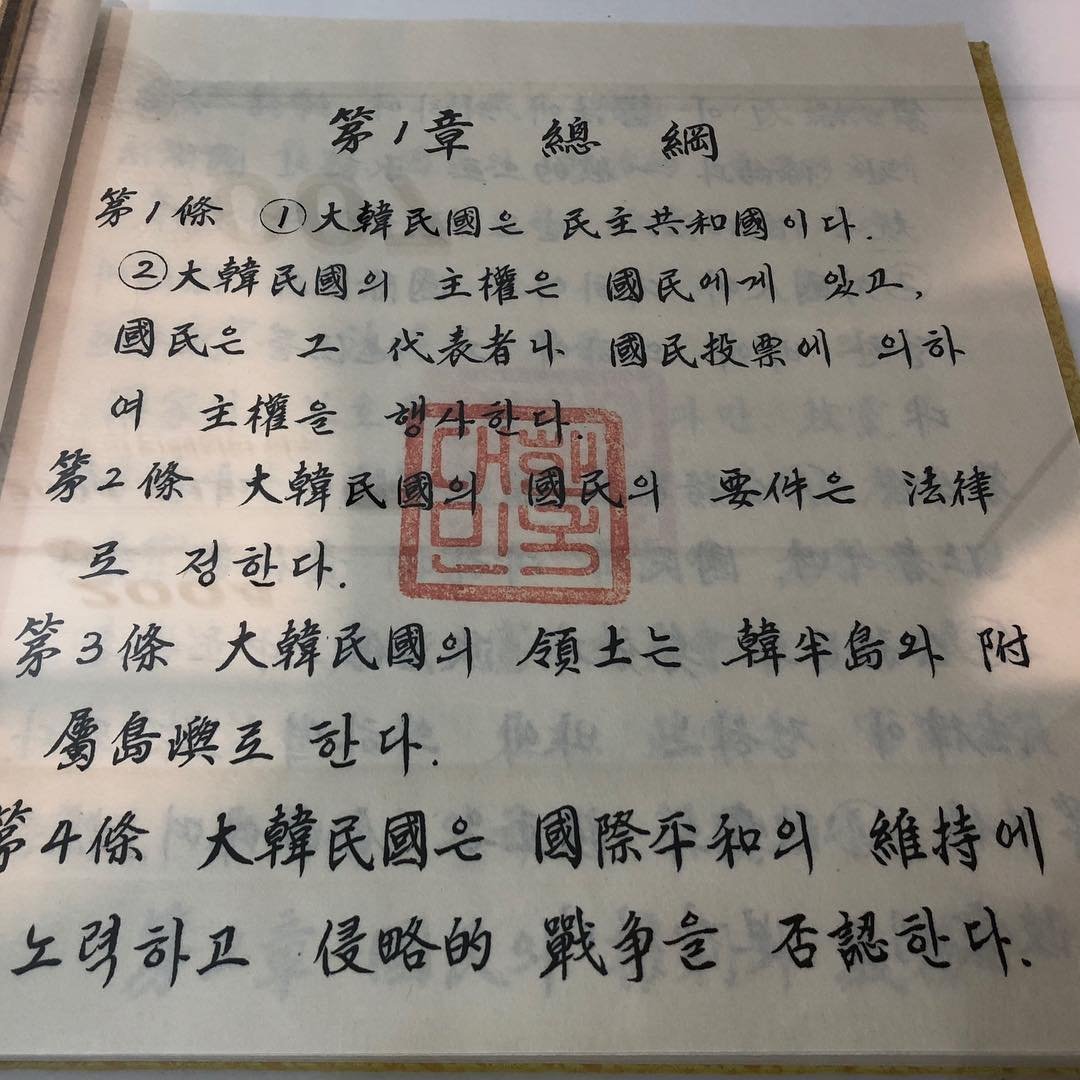 第1章 總綱
第1條 ①大韓民國은 民主共和國이다.
②大韓民國의 主權은 國民에게 있고,
國民은 그 代表者나 國民投票에 의하
여 主權을 행사한다.
第2條 大韓民國의 國民의 要件은 法律
로 정한다.
第3條 大韓民國의 領土는 韓半島와 附
屬島嶼로 한다.
第4條 大韓民國은 國際平和의 維持에
노력하고 侵略的 戰爭을 否認한다.
대한민국